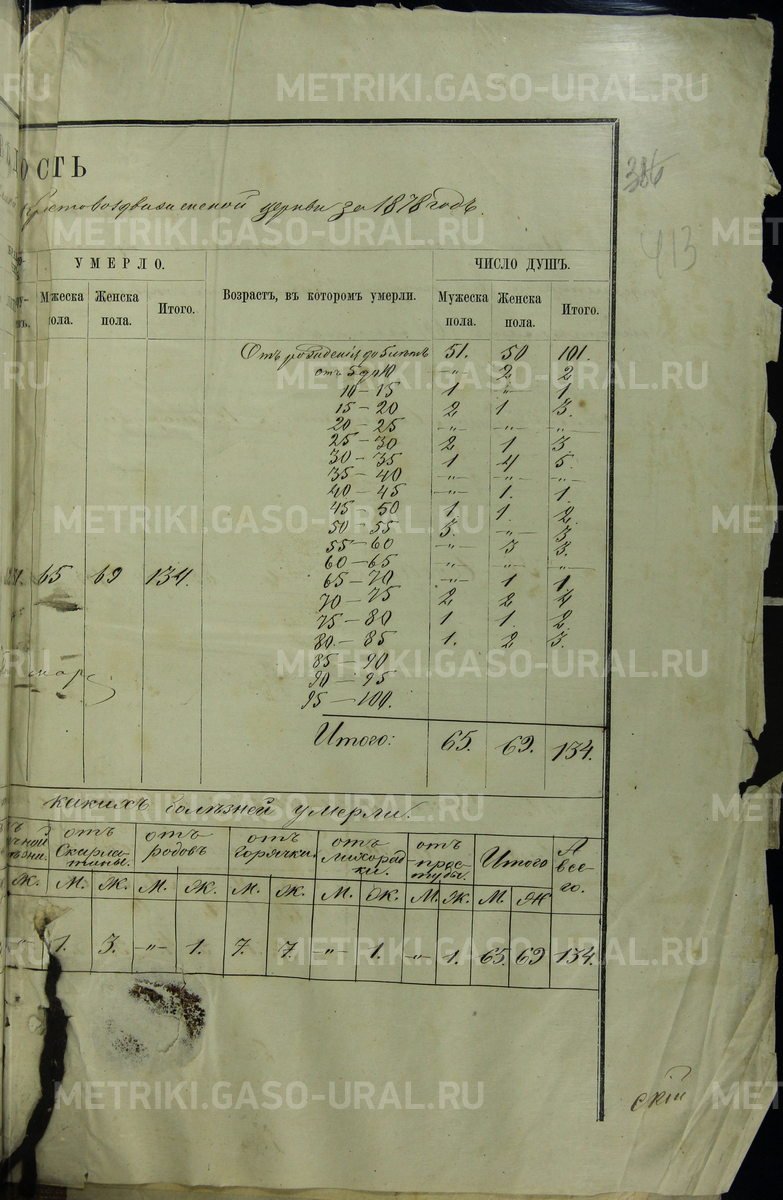 ОСТЬ
Крестовоздвиженской церкви за 1878 годъ.
386
413
УМЕРЛО.
ЧИСЛО ДУШЪ.
Мужеска пола. Женска пола. Итого. Возрастъ, въ которомъ умерли. Мужеска пола. Женска пола. Итого.
Отъ рожденія до 5 лѣтъ 51. 50 101.
отъ 5 до 10 -"- 2 2
10-15 1 -"- 1
15-20 2 1 3.
20-25 -"- -"- -"-
25-30 2 1 3
30-35 1 4 5.
35-40 -"- -"- -"-
40-45 -"- 1. 1.
45-50 1 1. 2.
50-55 3. -"- 3
55-60 -"- 3 3.
60-65 -"- -"- -"-
65 69 134.
65-70 -"- 1 1.
70-75 2 2 4
75-80 1 1. 2.
80-85 1. 2 3.
85-90
90-95
95-100.
Итого: 65. 69. 134.
какихъ болѣзней умерли.
отъ Скарлатины. отъ родовъ отъ горячки. отъ лихорадки. отъ простуды. Итого А всего.
Ж. М. Ж. М. Ж. М. Ж. М. Ж. М. Ж. М. Ж.
1. 3. -"- 1. 7. 7. -"- 1. -"- 1. 65. 69 134.
скій
METRIKI.GASO-URAL.RU